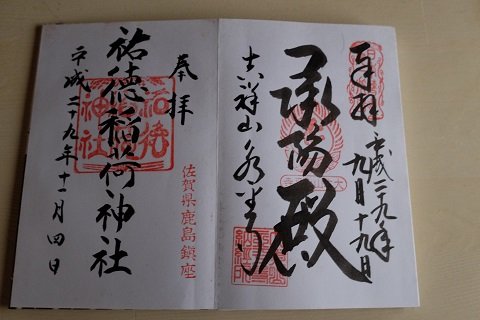 奉拝
平成二十九年九月十九日
承陽殿
吉祥山永平寺
奉拝
佐賀県鹿島鎮座
祐徳稲荷神社
平成二十九年十一月四日